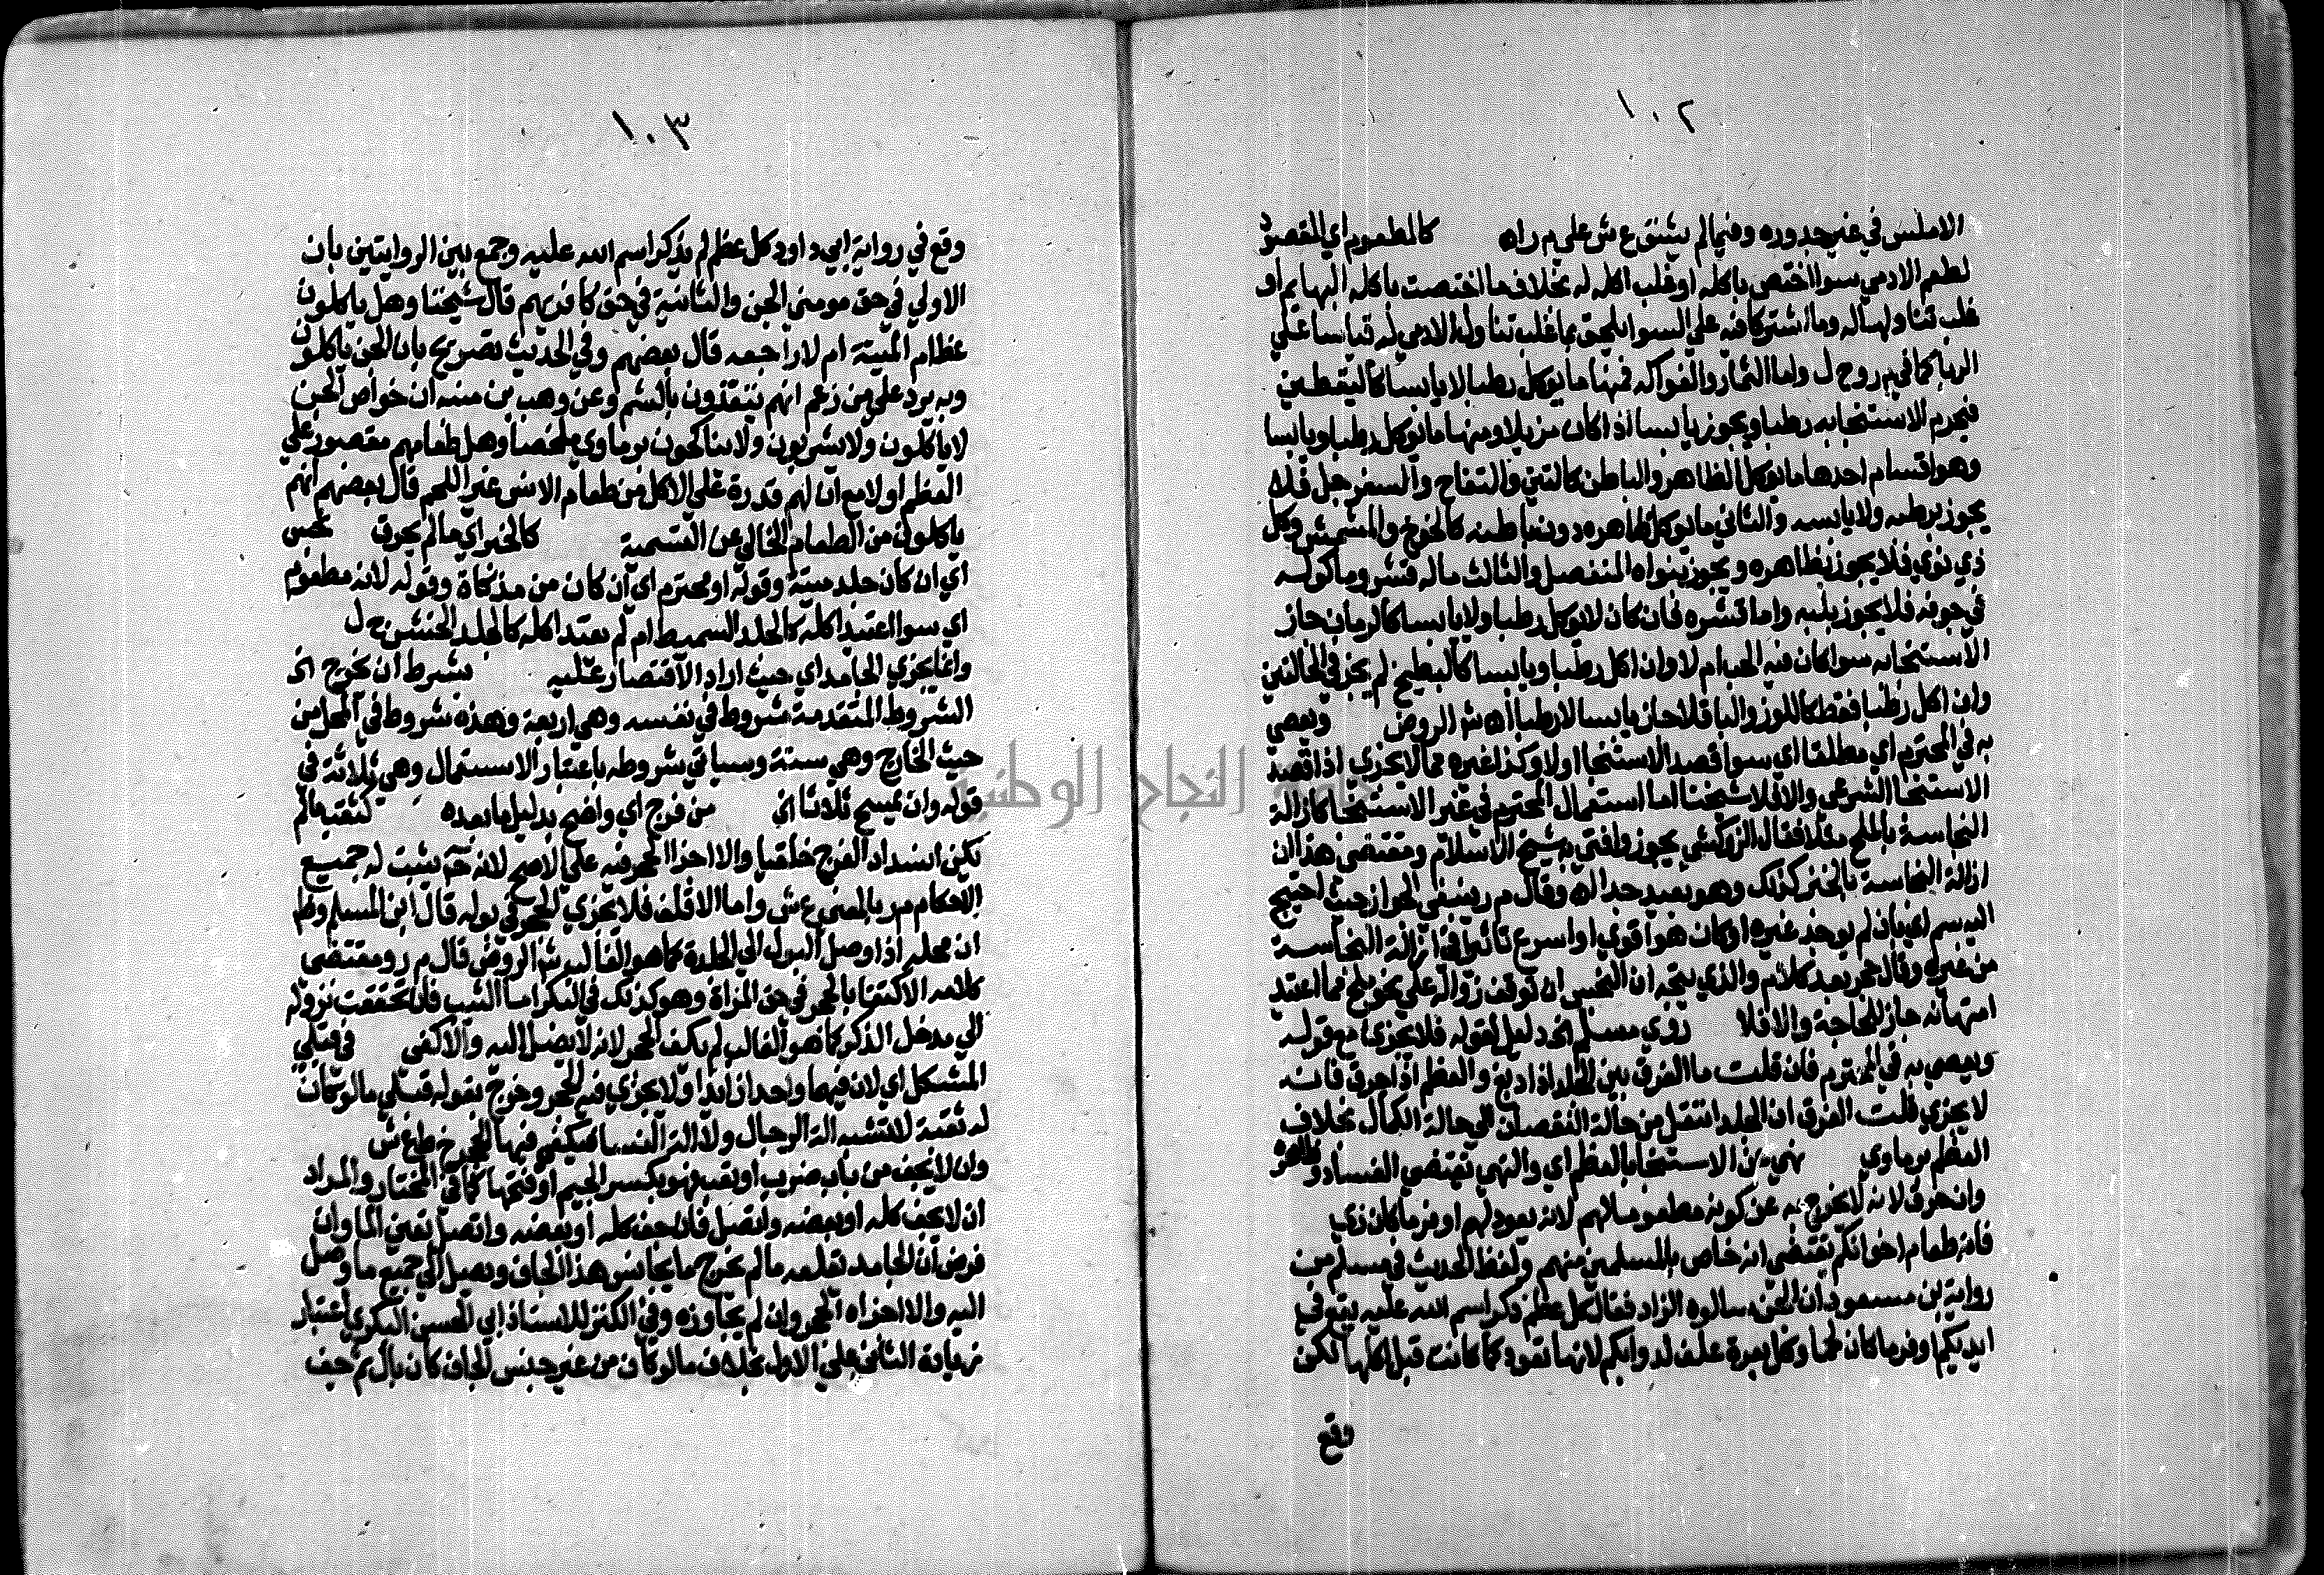 ١٠٢
الاملس في غير جدوره وفيما لم يشتق ع ش على م ر اه كالمطعوم اي المقصود
لطعم الادمي سوا اختص باكله او غلب اكله له بخلاف ما اختصت باكله البهايم او
غلب تناولها له وما اشتركا فيه على السوا يلحق بما غلب تناوله الادمي له قياسا على
الربا كما في م ر وح ل واما الثمار والفواكه فمنها ما يوكل رطبا لا يابسا كاليقطين
فيحرم الاستنجا به رطبا ويجوز يابسا اذا كان مزيلا ومنها ما يوكل رطبا ويابسا
وهو اقسام احدها ماكول الظاهر والباطن كالتين والتفاح والسفرجل فلا
يجوز برطبه ولا يابسه والثاني ما يوكل ظاهره دون باطنه كالخوخ والمشمش وكل
ذي نوى فلا يجوز بظاهره ويجوز بنواه المنفصل والثالث ما له قشر وماكوله
في جوفه فلا يجوز بلبه واما قشره فان كان لا يوكل رطبا ولا يابسا كالرمان جاز
الاستنجا به سوا كان فيه الحب ام لا وان اكل رطبا ويابسا كالبطيخ لم يجز في الحالتين
وان اكل رطبا فقط كاللوز والباقلا جاز يابسا لا رطبا اه ش الروض ويعصي
به في المحترم اي مطلقا اي سوا قصد الاستنجا اولا وكذا غيره مما لا يجزي اذا قصد
الاستنجا الشرعي والا فلا شيخنا اما استعمال المحترم في غير الاستنجا كازالة
النجاسة بالملح مثلا فقال الزركشي يجوز وافتى به شيخ الاسلام ومقتضى هذا ان
ازالة النجاسة بالخبز كذلك وهو بعيد جدا اه وقال م ر ينبغي الجواز حيث احتيج
اليه سم اي بان لم يوجد غيره او كان هو اقوى او اسرع تاثيرا في ازالة النجاسة
من غيره وقال حجر بعد كلام والذي يتجه ان النجس ان توقف زواله على نحو ملح مما اعتيد
امتهانه جاز للحاجة والا فلا روى مسلم الخ دليل لقوله فلا يجزي مع قوله
ويعصي به في المحترم فان قلت ما الفرق بين الجلد اذا دبغ والعظم اذا حرق فانه
لا يجزي قلت الفرق ان الجلد انتقل من حالة النقصان الى حالة الكمال بخلاف
العظم برماوي نهي عن الاستنجا بالعظم اي والنهي يقتضي الفساد وظاهره
وان حرق لانه لا يخرج به عن كونه مطعوما لهم لانه يعود لهم اوفر ما كان زي
فانه طعام اخوانكم يقتضي انه خاص بالمسلمين منهم ولفظ الحديث في مسلم من
رواية بن مسعود ان الجن سالوه الزاد فقال كل عظم ذكر اسم الله عليه يقع في
ايديكم اوفر ما كان لحما وكل بعرة علف لدوابكم لانها تعود كما كانت قبل اكلها لكن
وقع
١٠٣
وقع في رواية ابي داود كل عظم لم يذكر اسم الله عليه وجمع بين الروايتين بان
الاولى في حق مومني الجن والثانية في حق كافريهم قال شيخنا وهل ياكلون
عظام الميتة ام لا راجعه قال بعضهم وفي الحديث تصريح بان الجن ياكلون
وبه يرد على من زعم انهم يتغذون بالشم وعن وهب بن منبه ان خواص الجن
لا ياكلون ولا يشربون ولا يتناكحون برماوي ملخصا وهل طعامهم مقصور على
العظم اولا مع ان لهم قدرة على الاكل من طعام الانس غير اللحم قال بعضهم انهم
ياكلون من الطعام الخالي عن التسمية كالخبز اي ما لم يحرق نجس
اي ان كان جلد ميتة وقوله او محترم اي ان كان من مذكاة وقوله لانه مطعوم
اي سوا اعتيد اكله كالجلد السميط ام لم يعتد اكله كالجلد الخشن ح ل
وانما يجزي الجامد اي حيث اراد الاقتصار عليه بشرط ان يخرج الخ
الشروط المتقدمة شروط في نفسه وهي اربعة وهذه شروط في المحل من
حيث الخارج وهي ستة وسياتي شروطه باعتبار الاستعمال وهي ثلاثة في
قوله وان يمسح ثلاثا الخ من فرج اي واضح بدليل ما بعده كثقبة ما لم
يكن انسداد الفرج خلقيا والا اجزا الحجر فيه على الاصح لانه ح يثبت له جميع
الاحكام م ر بالمعنى ع ش واما الاقلف فلا يجزي الحجر في بوله قال ابن المسلم وظ
ان محله اذا وصل البول الى الجلدة كما هو الغالب ش الروض قال م ر ومقتضى
كلامه الاكتفا بالحجر في حق المراة وهو كذلك في البكر اما الثيب فان تحققت نزوله
الى مدخل الذكر كما هو الغالب لم يكف الحجر لانه لا يصل اليه والا كفى في قبلي
المشكل اي لان فيهما واحدا زايدا ولا يجزي فيه الحجر وخرج بقوله قبلي ما لو كان
له ثقبة لا تشبه الة الرجال ولا الة النسا فيكفي فيها الحجر خ ط ع ش
وان لا يجف من باب ضرب او تعب فهو بكسر الجيم او فتحها كما في المختار والمراد
ان لا يجف كله او بعضه ولم يتصل فان جف كله او بعضه واتصل تعين الما وان
فرض ان الجامد تقلعه ما لم يخرج مما يجانس هذا الجاف ويصل الى جميع ما وصل
اليه والا اجزاه الحجر وان لم يجاوزه وفي الكنز للاستاذ ابي الحسن البكري اعتبار
زيادة الثاني على الاول بخلاف ما لو كان من غير جنس الجاف كان بال ثم جف